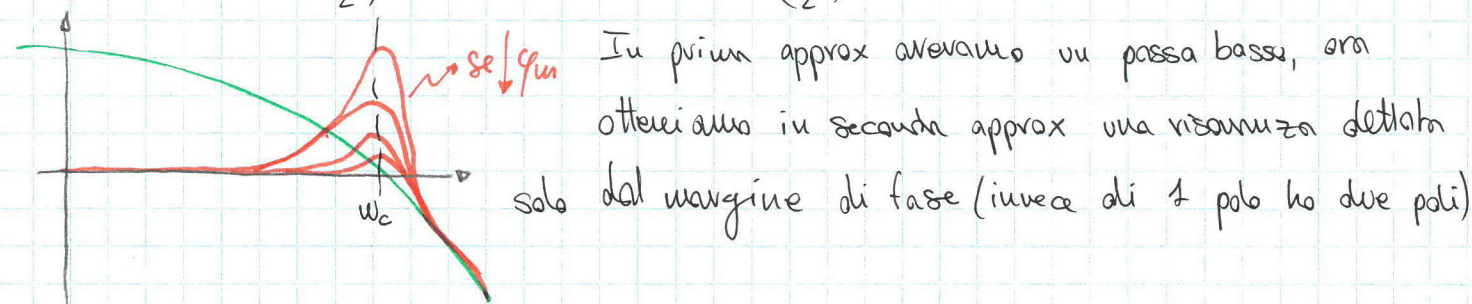 se ↓ φm
In prima approx avevamo un passa basso, ora
otteniamo in seconda approx una risonanza dettata
solo dal margine di fase (invece di 1 polo ho due poli)
ωc